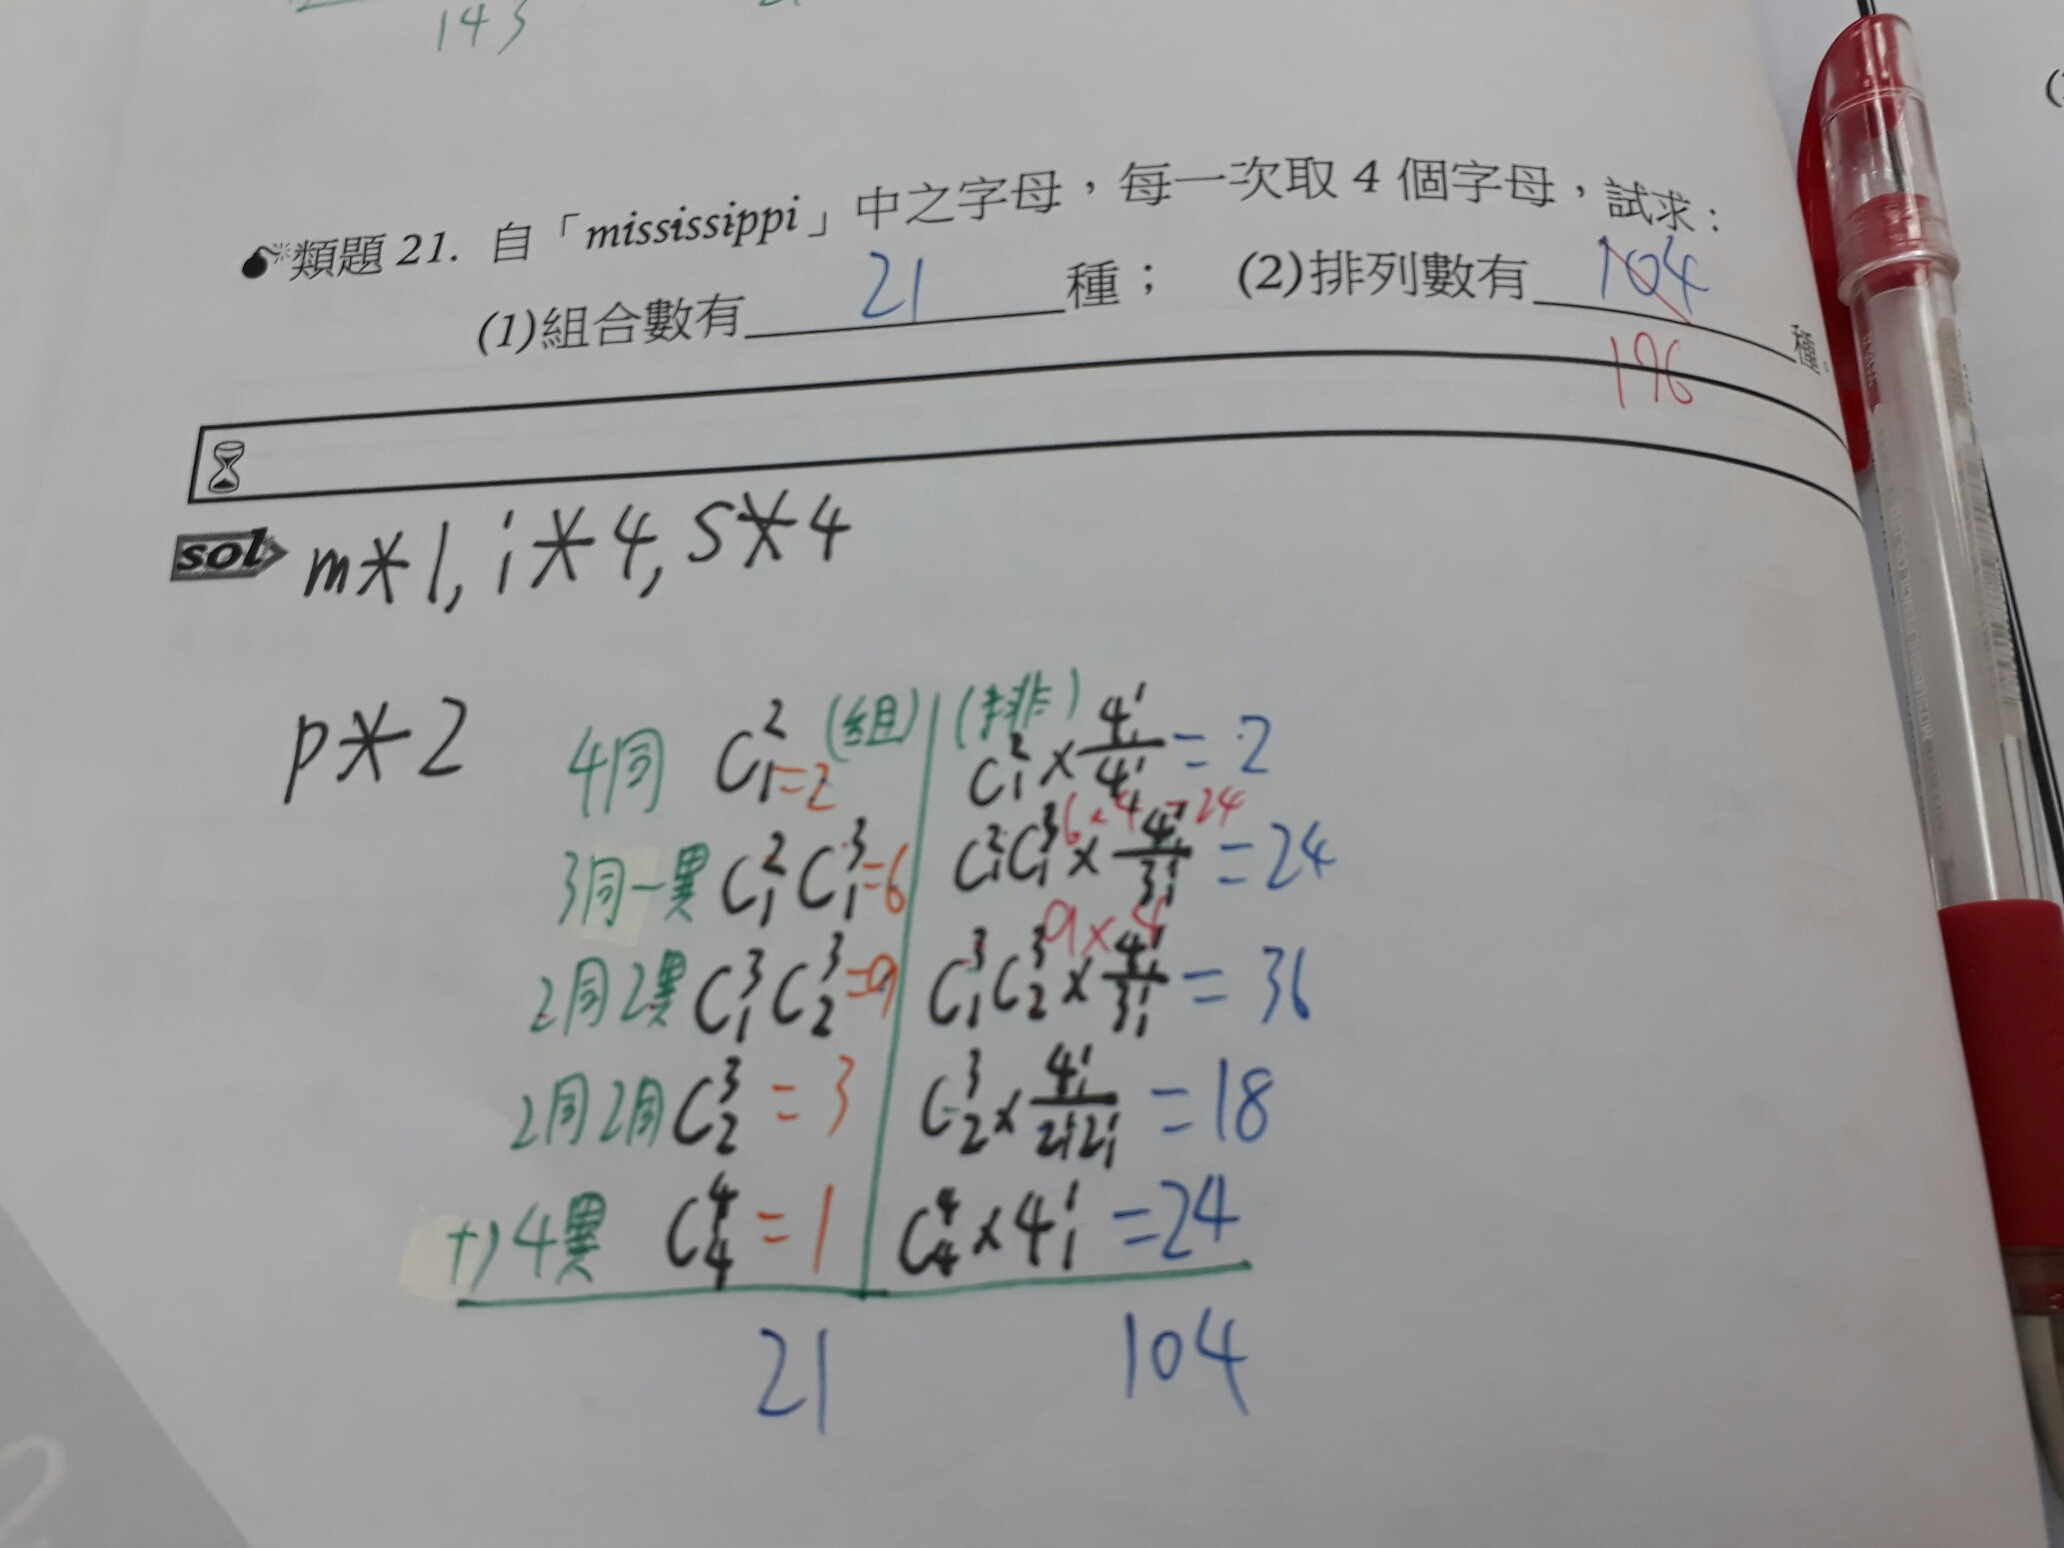 143
類題 21. 自「mississippi」中之字母，每一次取 4 個字母，試求：
(1)組合數有 21 種； (2)排列數有 104 種。
196
sol m*1, i*4, s*4
p*2
(組) (排)
4同 C²₁=2 C²₁×4!/4!=2
6×4=24
3同一異 C²₁C³₁=6 C²₁C³₁×4!/3!=24
9×4
2同2異 C³₁C³₂=9 C³₁C³₂×4!/3!=36
2同2同 C³₂=3 C³₂×4!/2!2!=18
+)4異 C⁴₄=1 C⁴₄×4!=24
21 104